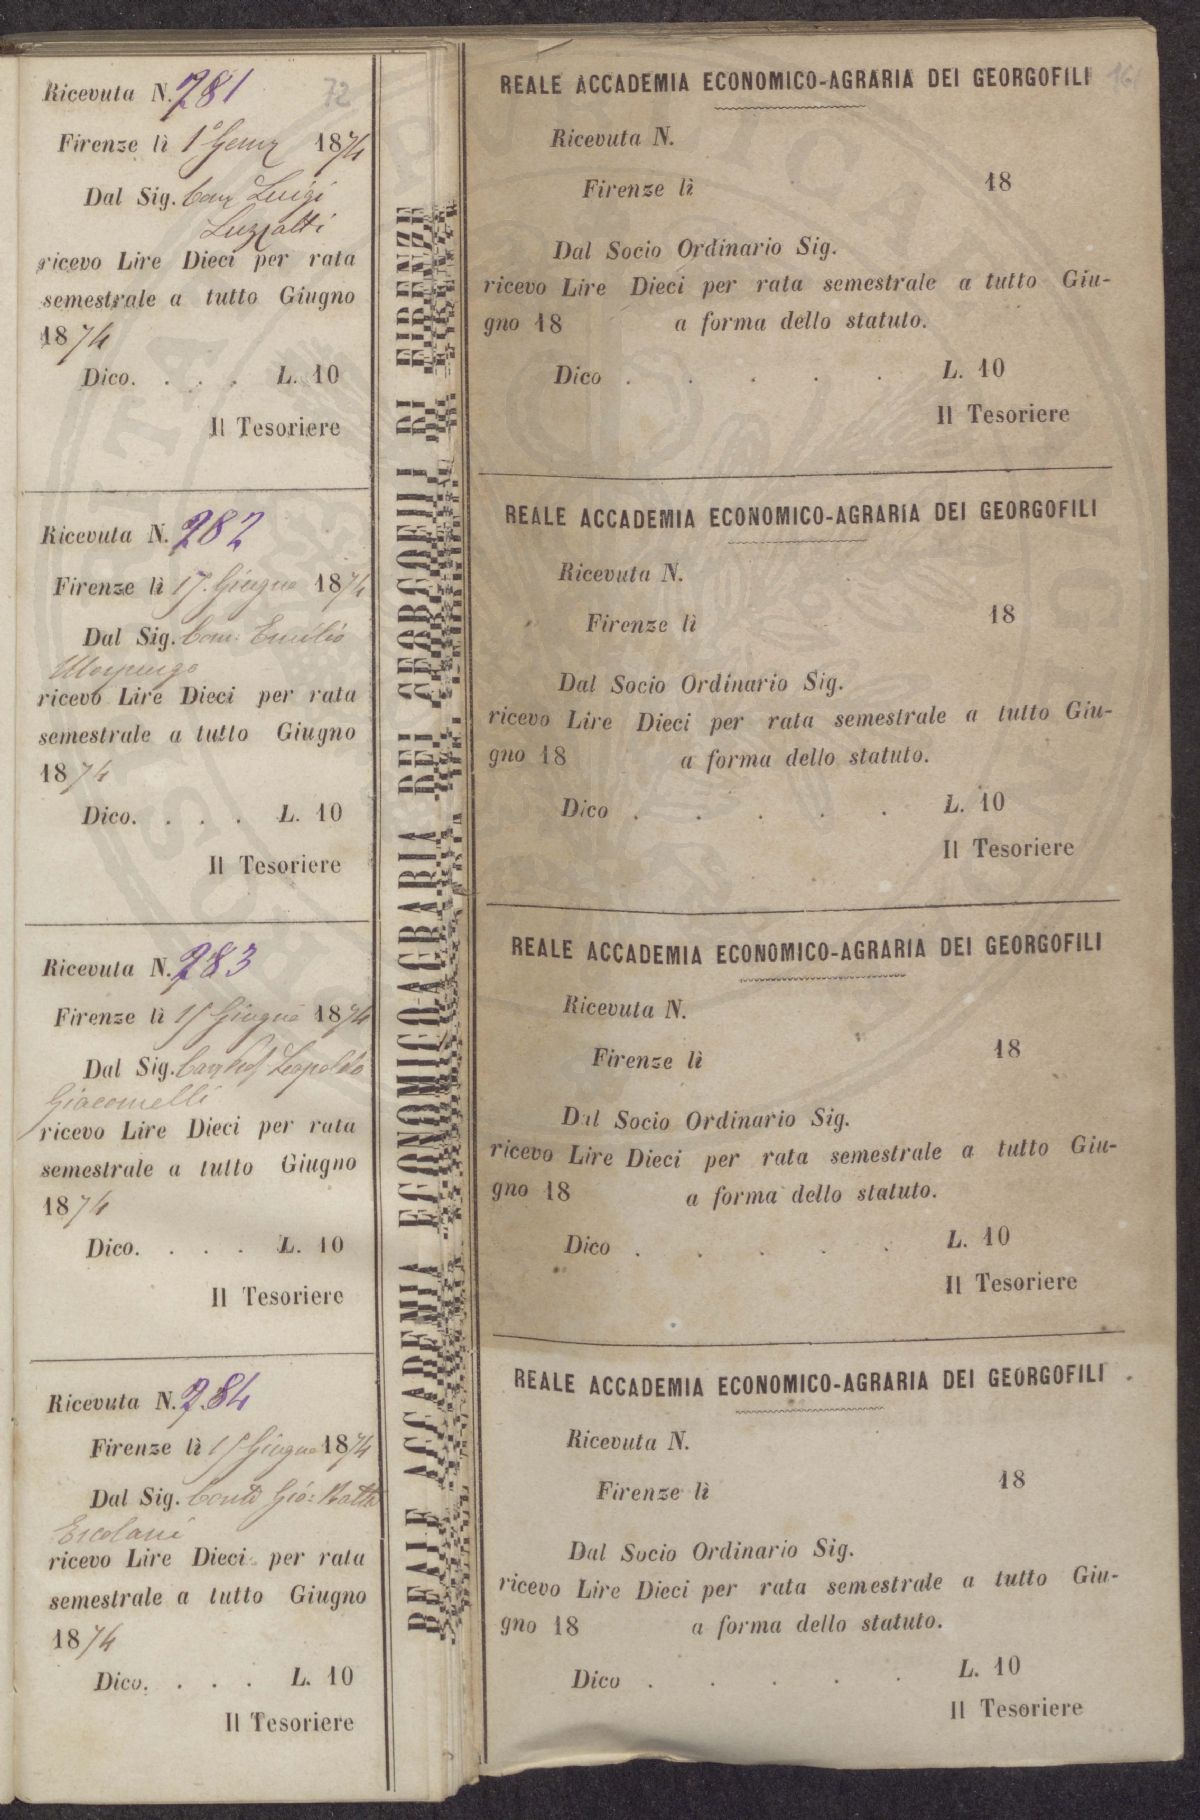 Ricevuta N. 281
72
Firenze lì 1° Genn 1874
Dal Sig. Cav Luigi
Luzzatti
ricevo Lire Dieci per rata
semestrale a tutto Giugno
1874
Dico. . . . L. 10
Il Tesoriere
Ricevuta N. 282
Firenze lì 17. Giugno 1874
Dal Sig. Com. Emilio
Morpurgo
ricevo Lire Dieci per rata
semestrale a tutto Giugno
1874
Dico. . . . L. 10
Il Tesoriere
Ricevuta N. 283
Firenze lì 15 Giugno 1874
Dal Sig. Cav Prof Leopoldo
Giacomelli
ricevo Lire Dieci per rata
semestrale a tutto Giugno
1874
Dico. . . . L. 10
Il Tesoriere
Ricevuta N. 284
Firenze lì 15 Giugno 1874
Dal Sig. Conte Gio: Batta
Ercolani
ricevo Lire Dieci per rata
semestrale a tutto Giugno
1874
Dico. . . . L. 10
Il Tesoriere
REALE ACCADEMIA ECONOMICO-AGRARIA DEI GEORGOFILI DI FIRENZE
REALE ACCADEMIA ECONOMICO-AGRARIA DEI GEORGOFILI
Ricevuta N.
Firenze lì 18
Dal Socio Ordinario Sig.
ricevo Lire Dieci per rata semestrale a tutto Giu-
gno 18 a forma dello statuto.
Dico . . . . . L. 10
Il Tesoriere
REALE ACCADEMIA ECONOMICO-AGRARIA DEI GEORGOFILI
Ricevuta N.
Firenze lì 18
Dal Socio Ordinario Sig.
ricevo Lire Dieci per rata semestrale a tutto Giu-
gno 18 a forma dello statuto.
Dico . . . . . L. 10
Il Tesoriere
REALE ACCADEMIA ECONOMICO-AGRARIA DEI GEORGOFILI
Ricevuta N.
Firenze lì 18
Dal Socio Ordinario Sig.
ricevo Lire Dieci per rata semestrale a tutto Giu-
gno 18 a forma dello statuto.
Dico . . . . . L. 10
Il Tesoriere
REALE ACCADEMIA ECONOMICO-AGRARIA DEI GEORGOFILI
Ricevuta N.
Firenze lì 18
Dal Socio Ordinario Sig.
ricevo Lire Dieci per rata semestrale a tutto Giu-
gno 18 a forma dello statuto.
Dico . . . . . L. 10
Il Tesoriere